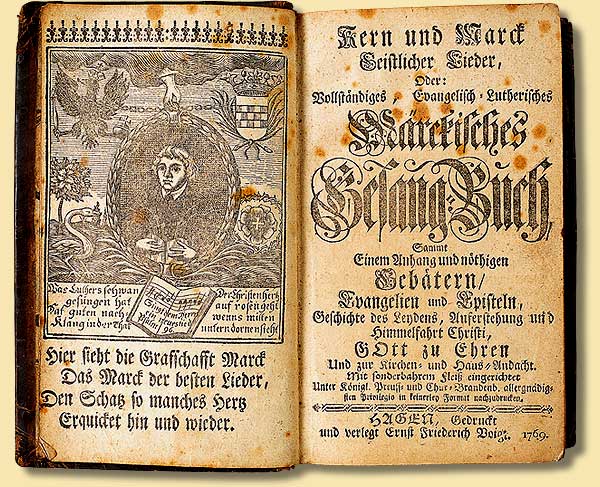 Was Luthers schwan
gesungen hat
Hat guten nach
Klang in der That
Singet dem Herrn
ein neues lied
Psalm. 96.
Der Christen hertz
auf rosen geht
wenns mitten
untern dornen steht
Hier sieht die Graffschafft Marck
Das Marck der besten Lieder,
Den Schatz so manches Hertz
Erquicket hin und wieder.
Kern und Marck
Geistlicher Lieder,
Oder:
Vollständiges, Evangelisch-Lutherisches
Märckisches
Gesang-Buch,
Sammt
Einem Anhang und nöthigen
Gebätern/
Evangelien und Episteln,
Geschichte des Leydens, Auferstehung und
Himmelfahrt Christi,
GOtt zu Ehren
Und zur Kirchen- und Haus-Andacht.
Mit sonderbahrem Fleiß eingerichtet
Unter Königl. Preuß- und Chur-Brandenb. allergnädig-
sten Privilegio in keinerley Format nachzudrucken.
HAGEN, Gedruckt
und verlegt Ernst Friederich Voigt. 1769.